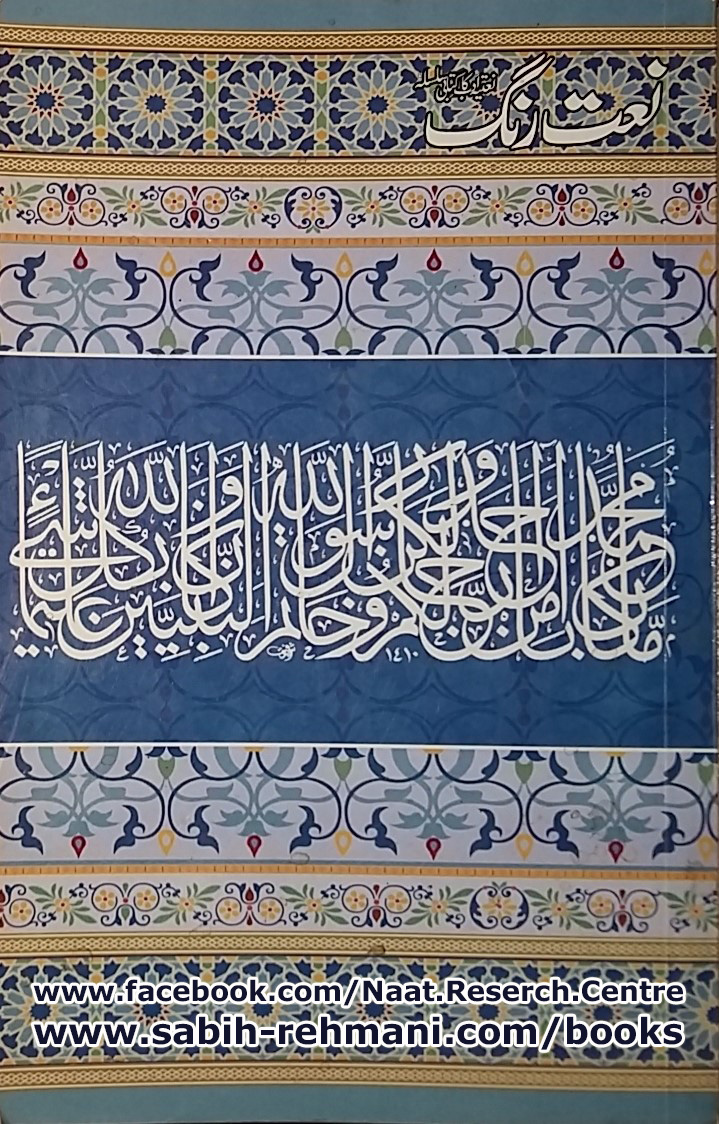 نعت رنگ
نعتیہ ادب کا کتابی سلسلہ
مَّا كَانَ مُحَمَّدٌ أَبَا أَحَدٍ مِّن رِّجَالِكُمْ وَلَٰكِن رَّسُولَ اللَّهِ وَخَاتَمَ النَّبِيِّينَ وَكَانَ اللَّهُ بِكُلِّ شَيْءٍ عَلِيمًا
١٤١٠
www.facebook.com/Naat.Reserch.Centre
www.sabih-rehmani.com/books